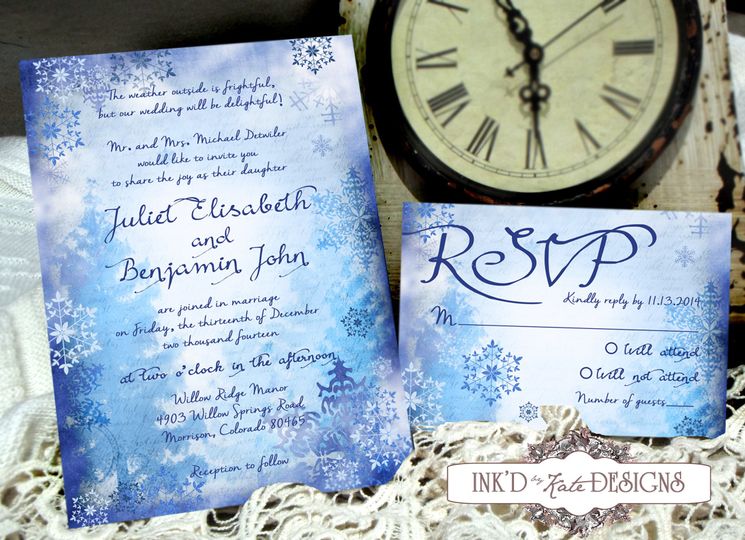 The weather outside is frightful,
but our wedding will be delightful!
Mr. and Mrs. Michael Detwiler
would like to invite you
to share the joy as their daughter
Juliet Elisabeth
and
Benjamin John
are joined in marriage
on Friday, the thirteenth of December
two thousand fourteen
at two o'clock in the afternoon
Willow Ridge Manor
4903 Willow Springs Road
Morrison, Colorado 80465
Reception to follow
RSVP
Kindly reply by 11.13.2014
M
Will attend
Will not attend
Number of guests
INK'D by Kate DESIGNS